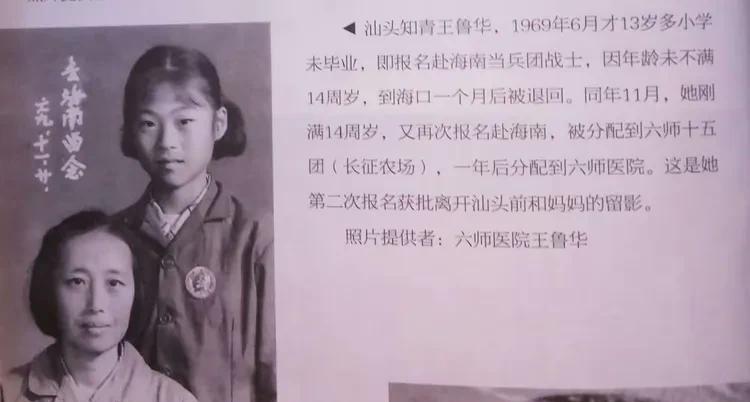 去海南留念
六九.十一.廿.
◀ 汕头知青王鲁华，1969年6月才13岁多小学
未毕业，即报名赴海南当兵团战士，因年龄未不满
14周岁，到海口一个月后被退回。同年11月，她刚
满14周岁，又再次报名赴海南，被分配到六师十五
团（长征农场），一年后分配到六师医院。这是她
第二次报名获批离开汕头前和妈妈的留影。
照片提供者：六师医院王鲁华